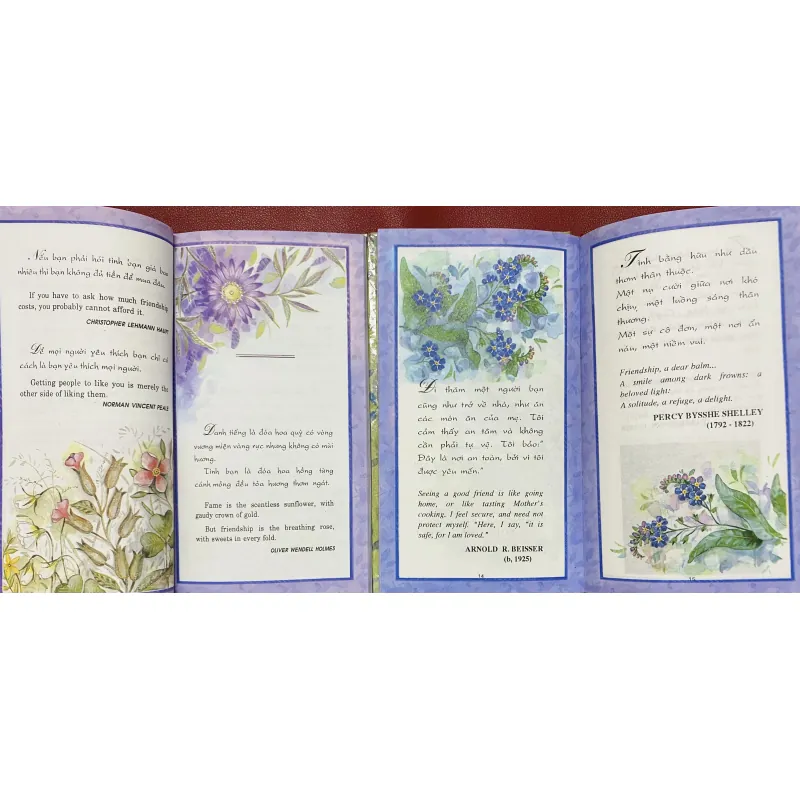 Nếu bạn phải hỏi tình bạn giá bao
nhiêu thì bạn không đủ tiền để mua đâu.
If you have to ask how much friendship
costs, you probably cannot afford it.
CHRISTOPHER LEHMANN HAUPT
Để mọi người yêu thích bạn chỉ có
cách là bạn yêu thích mọi người.
Getting people to like you is merely the
other side of liking them.
NORMAN VINCENT PEALE
Danh tiếng là đóa hoa quỳ có vòng
vương miện vàng rực nhưng không có mùi
hương.
Tình bạn là đóa hoa hồng từng
cánh mỏng đều tỏa hương thơm ngát.
Fame is the scentless sunflower, with
gaudy crown of gold.
But friendship is the breathing rose,
with sweets in every fold.
OLIVER WENDELL HOLMES
Đi thăm một người bạn
cũng như trở về nhà, như ăn
các món ăn của mẹ. Tôi
cảm thấy an tâm và không
cần phải tự vệ. Tôi bảo:"
Đây là nơi an toàn, bởi vì tôi
được yêu mến."
Seeing a good friend is like going
home, or like tasting Mother's
cooking. I feel secure, and need not
protect myself. "Here, I say, "it is
safe, for I am loved."
ARNOLD R. BEISSER
(b, 1925)
14
Tình bằng hữu như dầu
thơm thân thuộc.
Một nụ cười giữa nơi khó
chịu, một luồng sáng thân
thương.
Một sự cô đơn, một nơi ẩn
náu, một niềm vui.
Friendship, a dear balm...
A smile among dark frowns: a
beloved light:
A solitude, a refuge, a delight.
PERCY BYSSHE SHELLEY
(1792 - 1822)
15